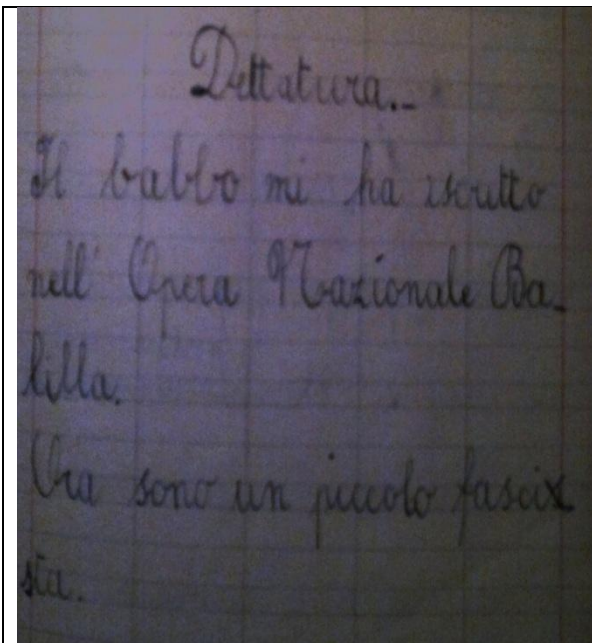 Dettatura.-
Il babbo mi ha iscritto
nell' Opera Nazionale Ba-
lilla.
Ora sono un piccolo fascix
sta.